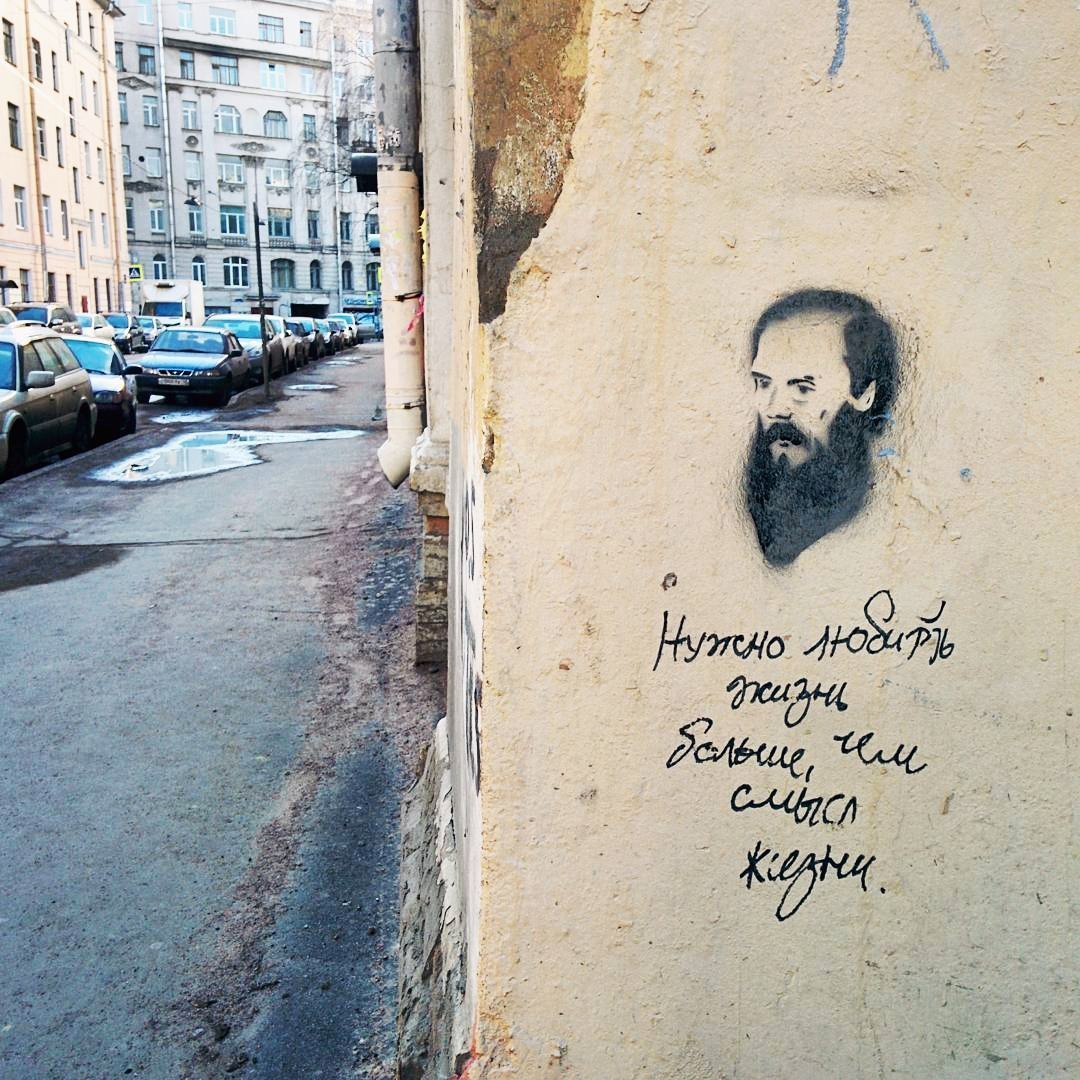 Нужно любить
жизнь
больше, чем
смысл
жизни.